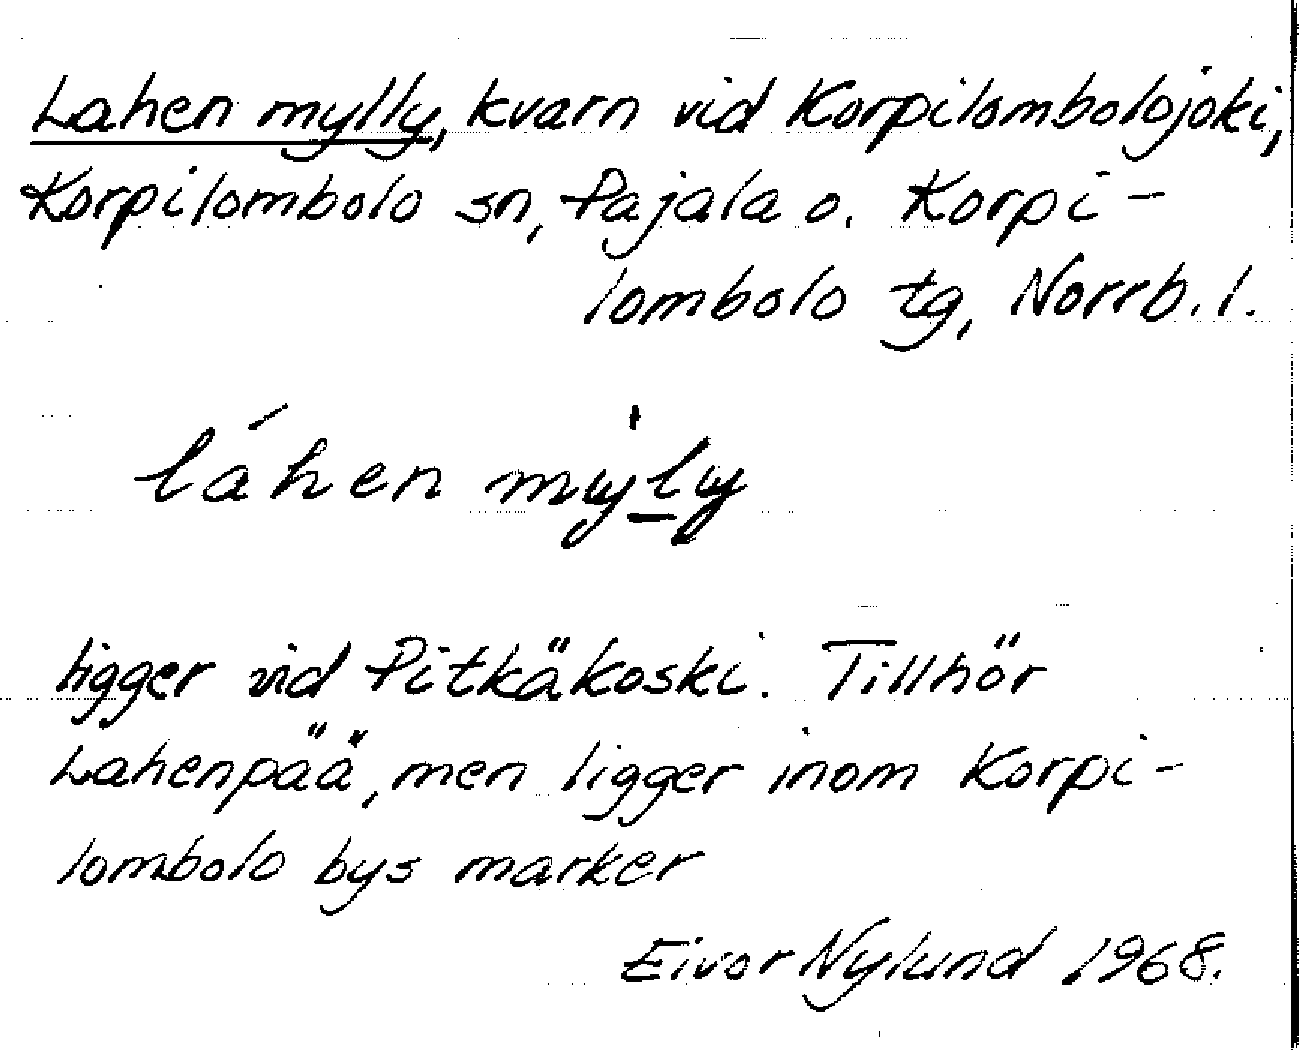 Lahen mylly, kvarn vid Korpilombolojoki,
Korpilombolo sn, Pajala o. Korpi-
lombolo tg, Norrb. l.
láhen myly
ligger vid Pitkäkoski. Tillhör
Lahenpää, men ligger inom Korpi-
lombolo bys marker
Eivor Nylund 1968.